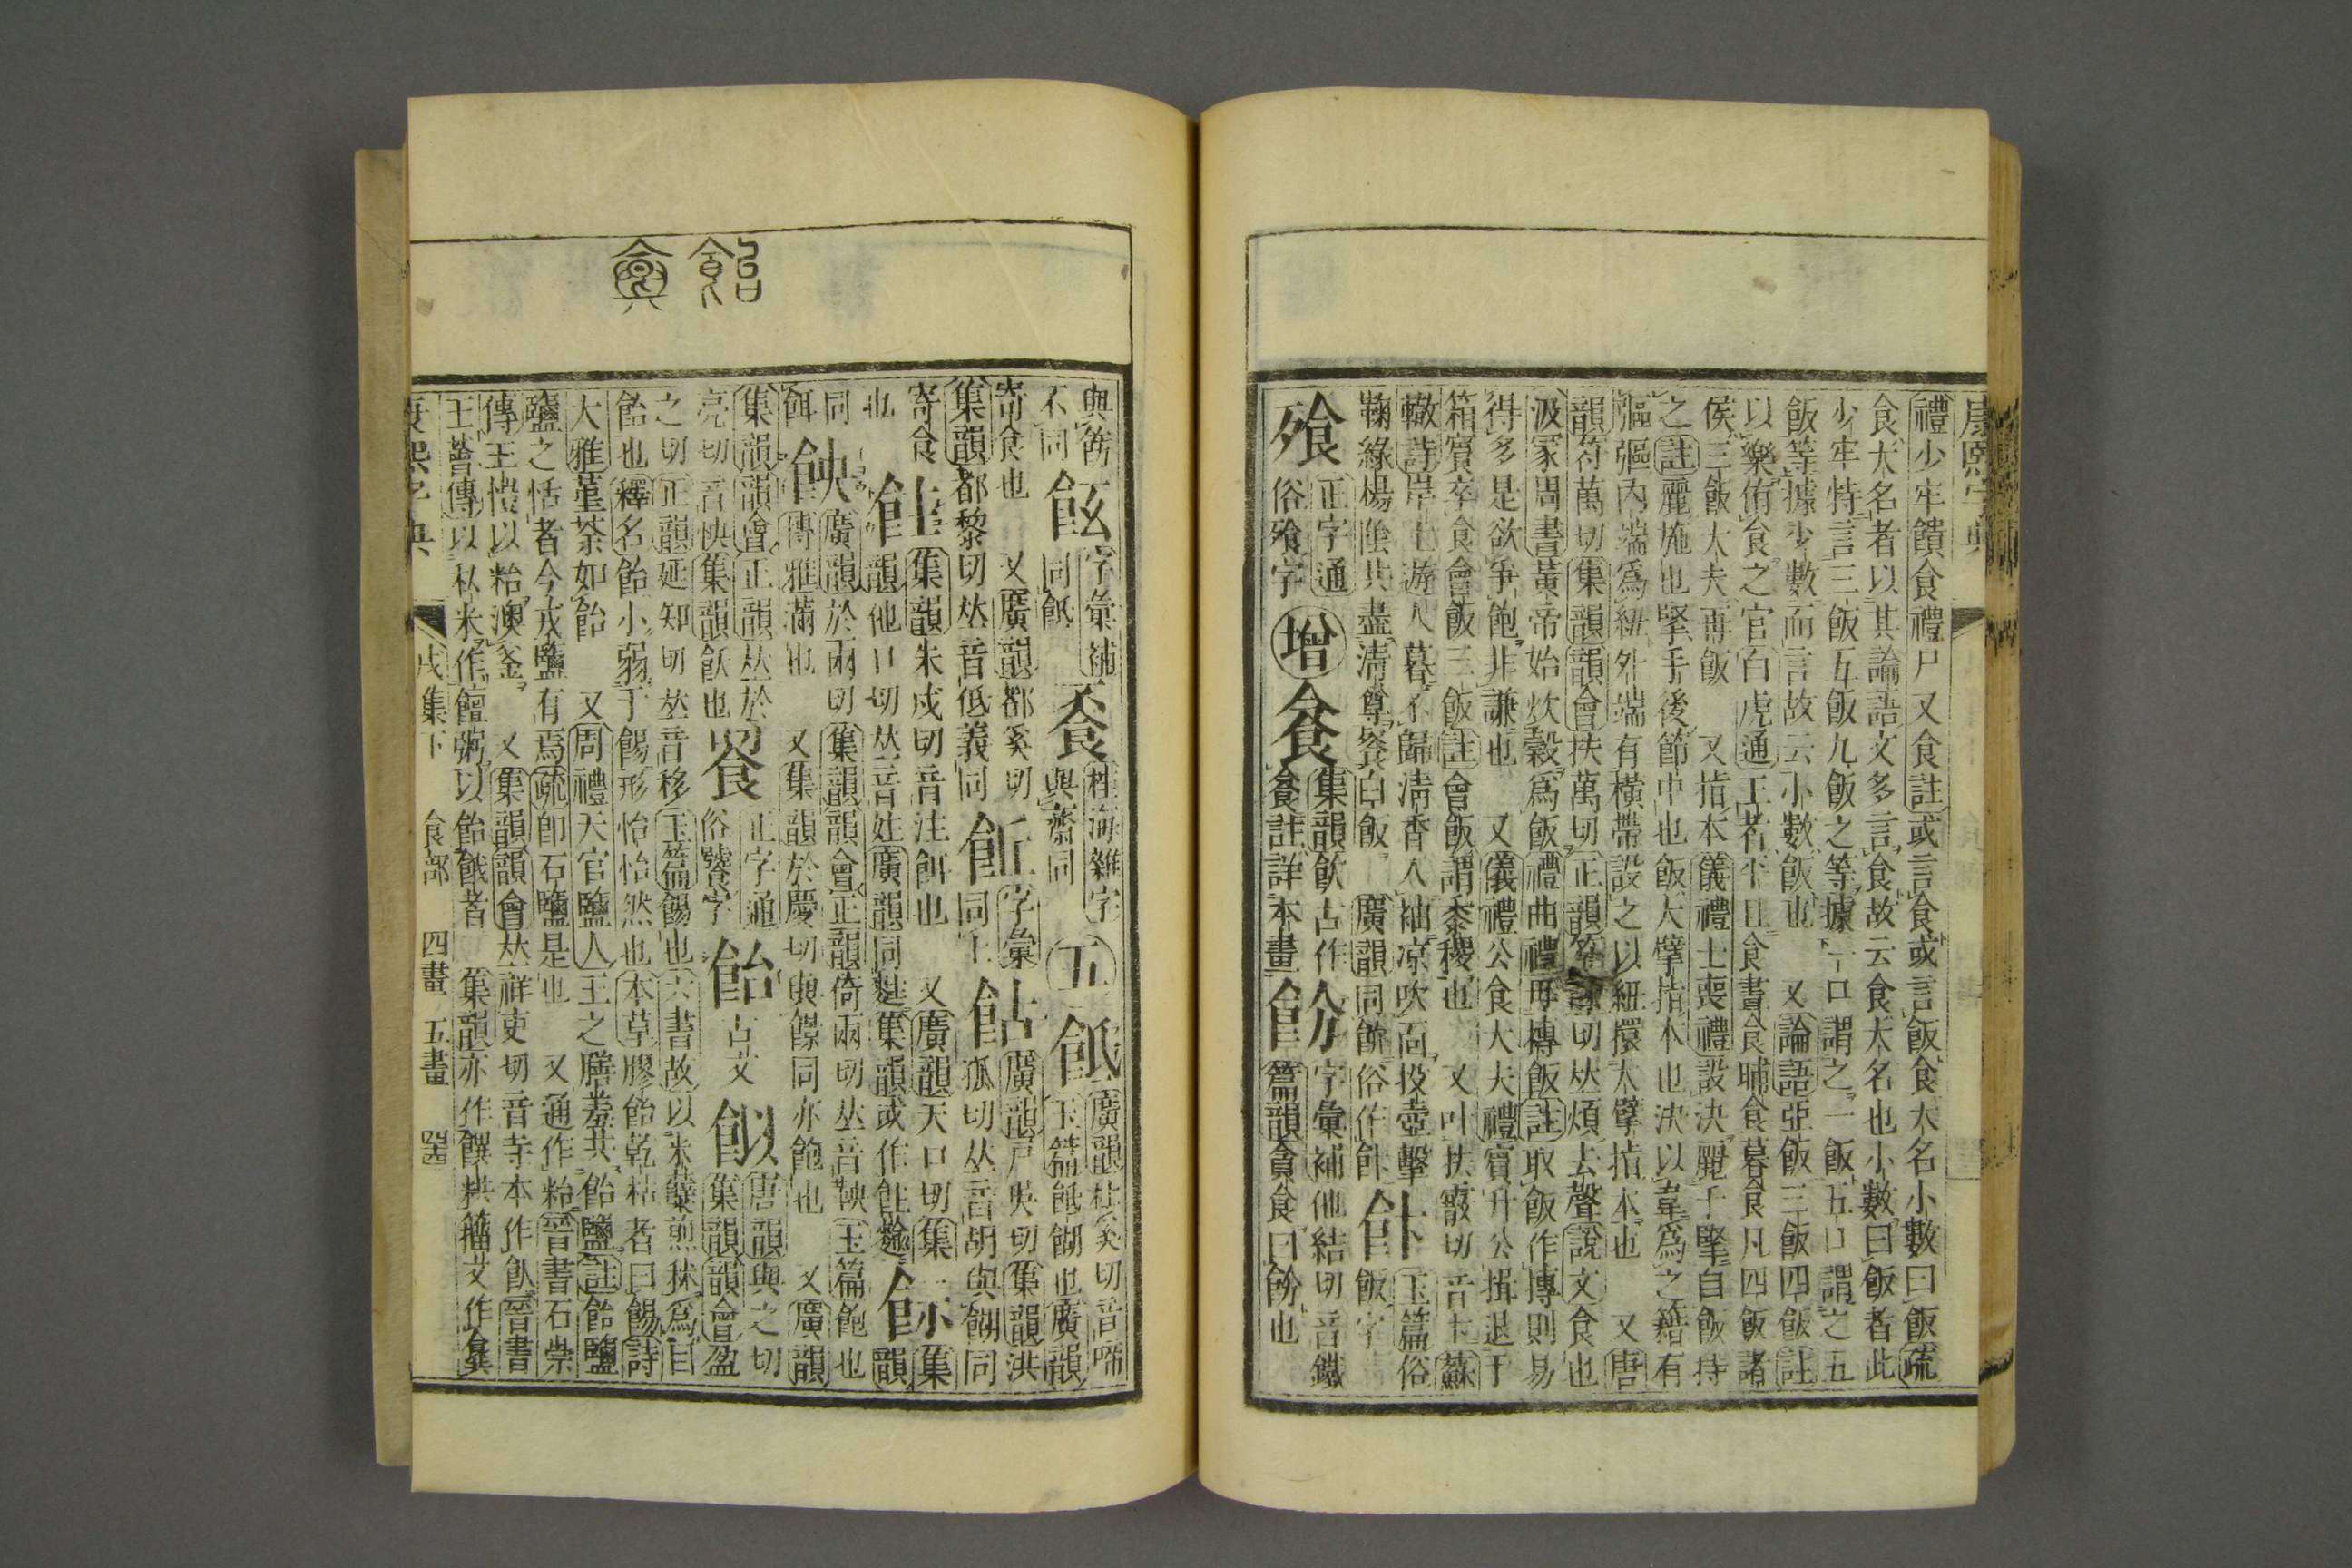 康熙字典
禮少牢饋食禮尸又食註或言食或言飯食大名小數曰飯疏
食大名者以其論語文多言食故云食大名也小數曰飯者此
少牢特言三飯五飯九飯之等據一口謂之一飯五口謂之五
飯等據少數而言故云小數飯也 又論語亞飯三飯四飯註
以樂侑食之官白虎通王者平旦食晝食晡食暮食凡四飯諸
侯三飯大夫再飯 又指本儀禮士喪禮設決麗于掔自飯持
之註麗施也掔手後節中也飯大擘指本也決以韋為之籍有
彄彄內端為紐外端有橫帶設之以紐擐大擘指本也 又唐
韻符萬切集韻韻會扶萬切正韻符諫切𠀤煩去聲說文食也
汲冢周書黃帝始炊穀為飯禮曲禮毋摶飯註取飯作摶則易
得多是欲爭飽非謙也 又儀禮公食大夫禮賓升公揖退于
箱賓卒食會飯三飯註會飯謂黍稷也 又叶扶霰切音卞蘇
轍詩岸上遊人暮不歸清香入袖涼吹面投壺擊
鞠綠楊陰共盡清尊餐白飯 廣韻同飰俗作飰
飰玉篇俗飯字
飱正字通俗飧字 增
飠集韻飲古作飠註詳本畫
飻字彙補他結切音鐵篇韻貪食曰飻也
與舊不同
䭇字彙補同䬵
䬤桂海雜字與齋同
五
䬵廣韻杜奚切音啼玉篇䬵餬也廣韻
寄食也 又廣韻都奚切
集韻都黎切𠀤音低義同
䬫字彙同上
𩚩廣韻戸吳切集韻洪孤切𠀤音胡與餬同
寄食也
飳集韻朱戍切音注餌也 又廣韻天口切集韻他口切𠀤音妵廣韻同䴺集韻或作飳𪌘
䬴集韻同餌
䬬廣韻於兩切集韻韻會正韻倚兩切𠀤音鞅玉篇飽也
博雅滿也 又集韻於慶切與䭘同亦飽也 又廣韻
集韻韻會正韻𠀤於亮切音怏集韻飫也
𩚳正字通俗饕字
飴古文𩛛唐韻與之切集韻韻會盈
之切正韻延知切𠀤音移玉篇餳也六書故以米糵煎秫為
飴也釋名飴小弱于餳形怡怡然也本草膠飴乾枯者曰餳詩
大雅堇荼如飴 又周禮天官鹽人王之膳羞共飴鹽註飴鹽
鹽之恬者今戎鹽有焉疏即石鹽是也 又通作粭晉書石崇
傳王愷以粭澳釜 又集韻韻會𠀤祥吏切音寺本作飤晉書
王薈傳以私米作饘粥以飴餓者 集韻亦作䭆𥹋籀文作𩜋
康熙字典 戌集下 食部 四畫 五畫